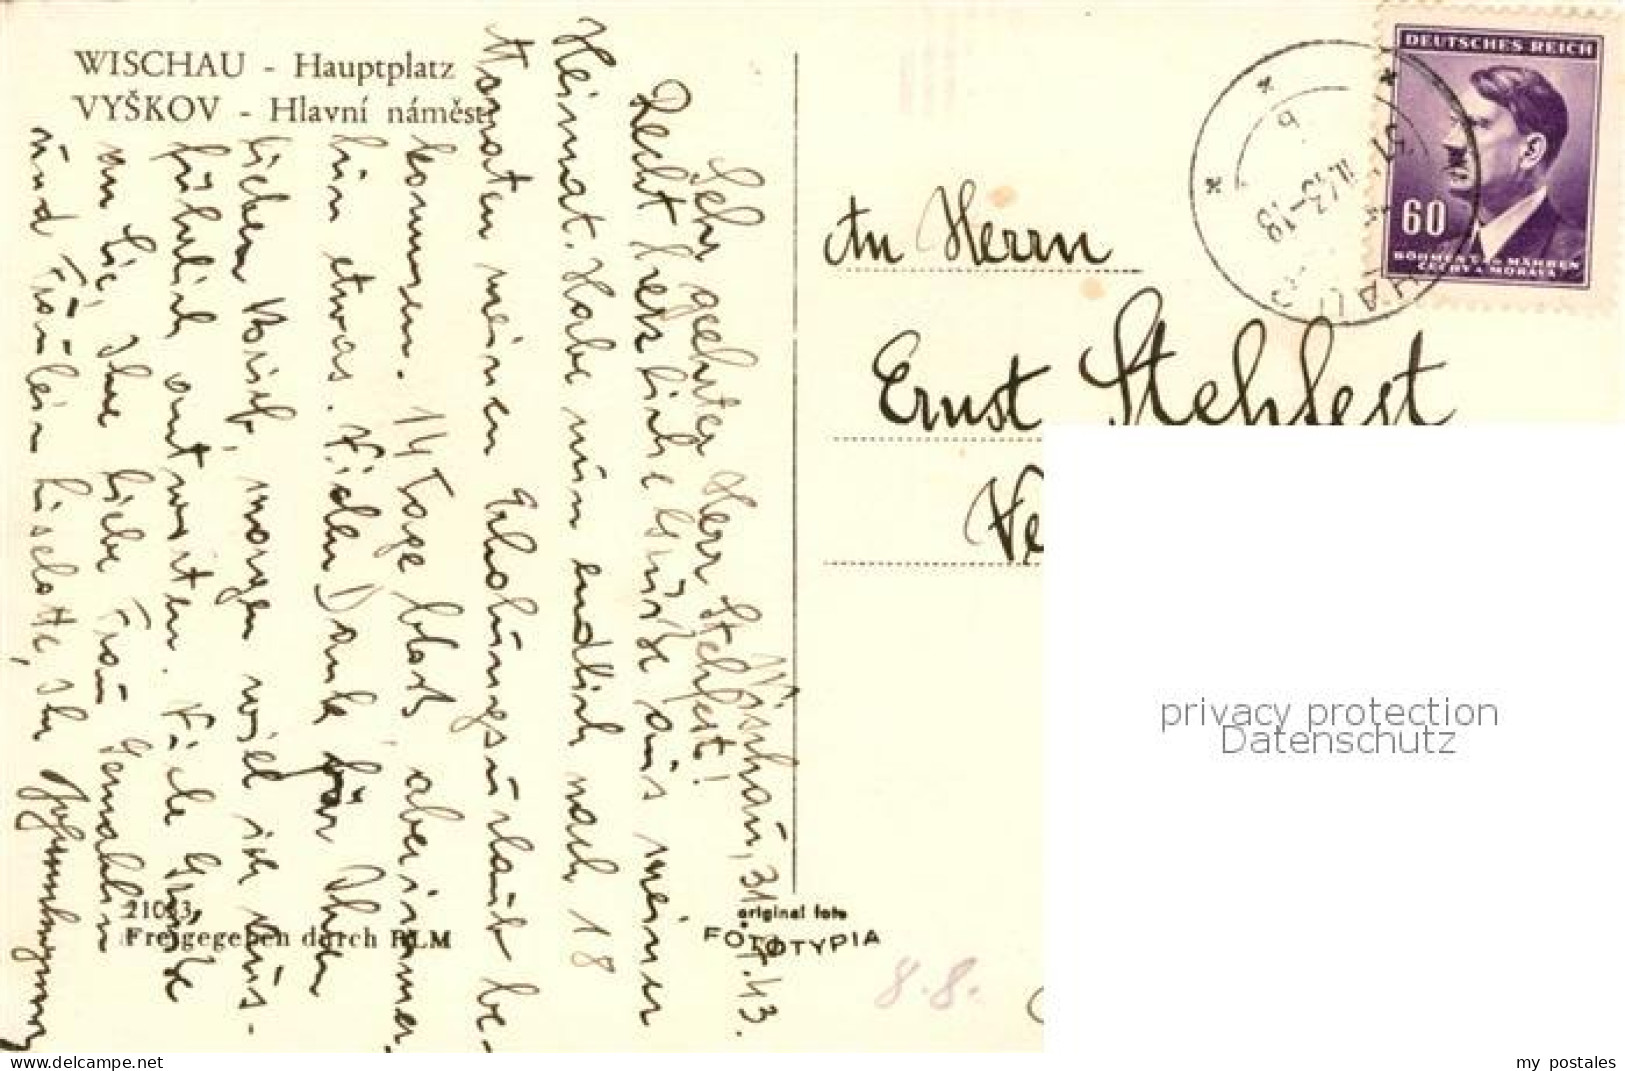 WISCHAU - Hauptplatz
VYŠKOV - Hlavní náměstí
Wischau, 31.7.43.
Sehr geehrter Herr Stehfest!
Recht herzliche Grüße aus meiner
Heimat. Habe nun endlich nach 18
Monaten meinen Erholungsurlaub be-
kommen. 14 Tage bloß aber immer
hin etwas. Vielen Dank für Ihren
lieben Brief, morgen wird ich aus-
führlich antworten. Viele Grüße
an Sie, Ihre liebe Frau Gemahlin
und Fräulein Liselotte, Ihr
21033
Freigegeben durch RLM
original foto
FOTOTYPIA
8.8.
An Herrn
Ernst Stehfest
Ve
DEUTSCHES REICH
60
BÖHMEN UND MÄHREN
ČECHY A MORAVA
43-18
b
privacy protection
Datenschutz
my postales